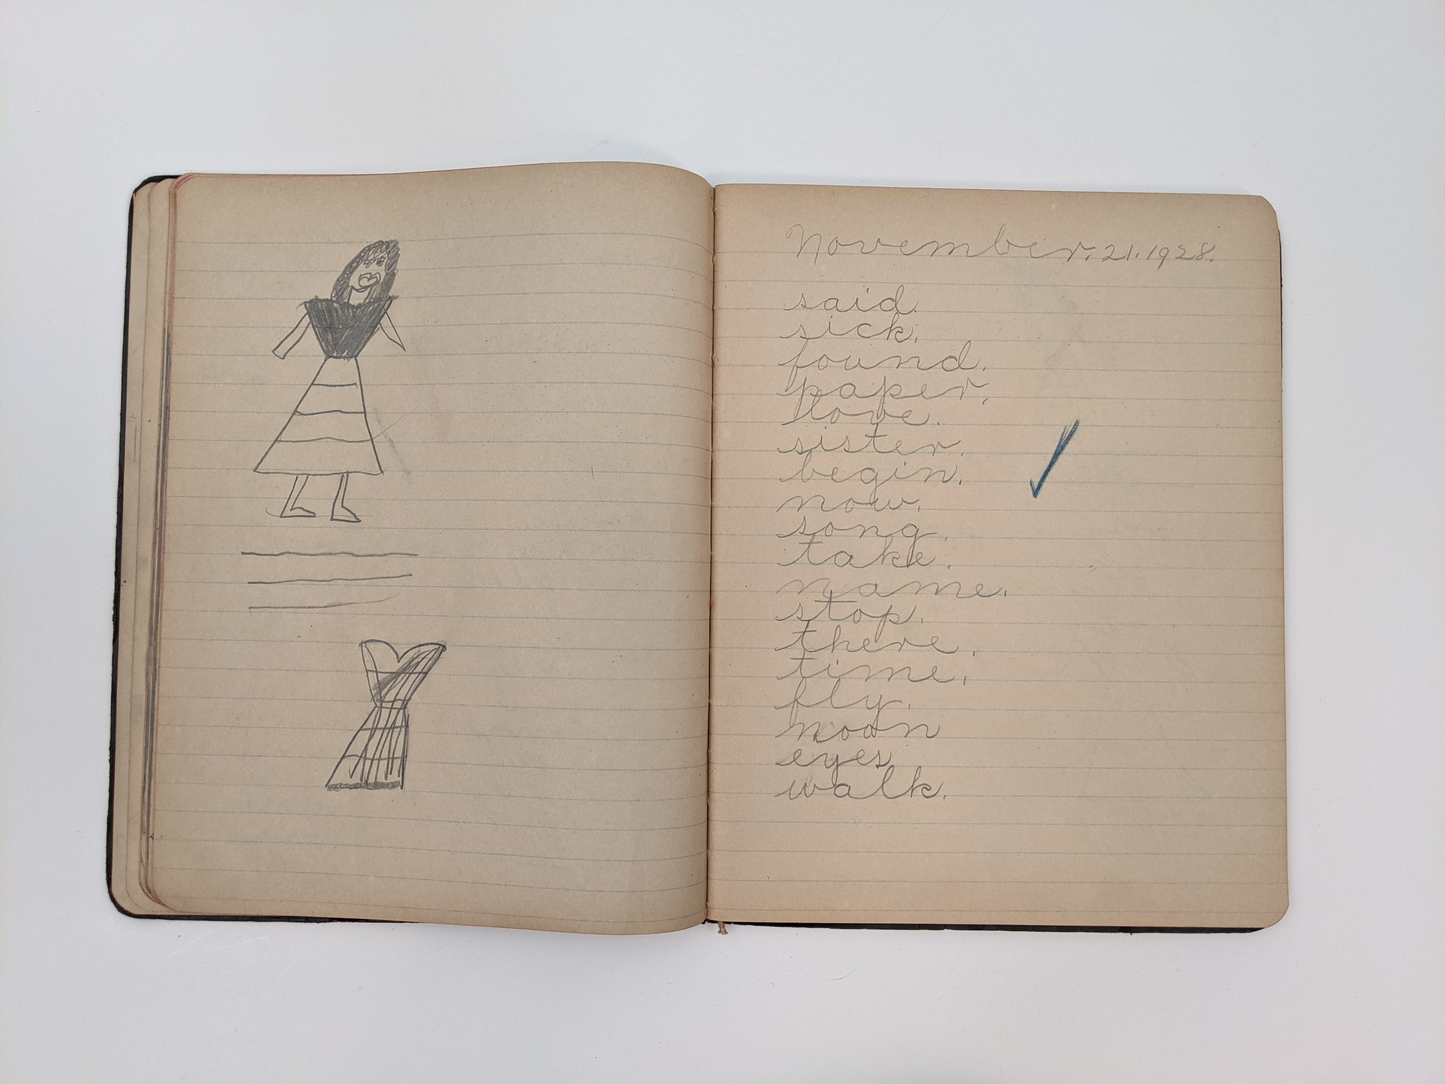 November. 21. 1928.
said.
sick.
found.
paper.
love.
sister.
begin.
now.
song.
take.
name.
stop.
there.
time.
fly.
moon
eyes.
walk.